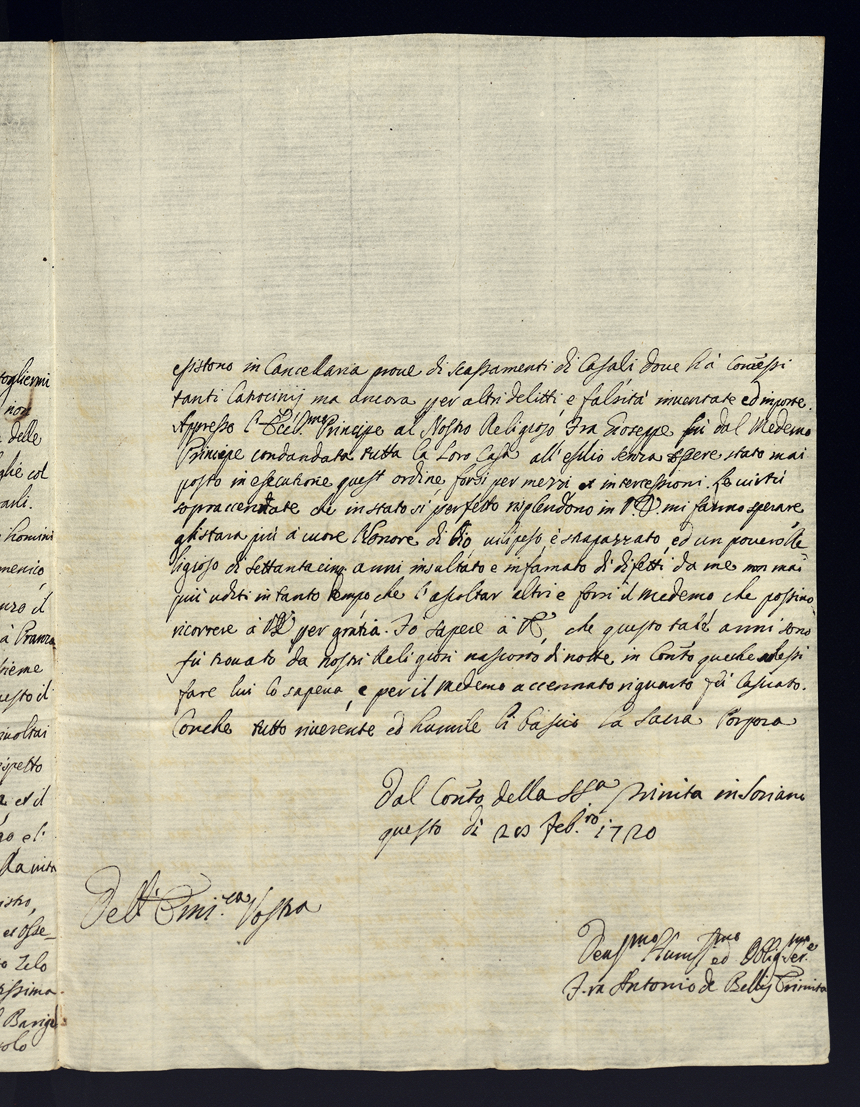 togliermi
non
delle
glie col
arli.
homini
menico
nzo il
à Pranza
sieme
uesto il
spetto
et il
ro e l'
lla vita
istro,
et osse-
o Zelo
issima
Barigel
olo
esistono in Cancellaria prove di scassamenti di Casali dove hà concessi
tanti Latrocinij ma ancora per altri delitti e falsità inventate ed imposte.
Appresso l'Ecc.mo Principe al Nostro Religioso Fra Gioseppe fù dal Medemo
Principe condandata tutta la Loro Casa all'esilio senza essere stato mai
posto in esecutione quest ordine forsi per mezzi et intercessioni. Le virtù
sopraccendate che in stato si perfetto risplendono in V.E. mi fanno sperare
gli stara più à cuore l'honore di Dio vilipeso è strapazzato, ed un povero Re
ligioso di settantacinq anni insultato e infamato di difetti da me non mai
più uditi in tanto tempo che l'ascoltar altri e forsi il medemo che possino
ricorrere à V.E. per gratia. Fo sapere à V.E. che questo tale anni sono
fù trovato da nostri Religiosi nascosto di notte in Conto que che volessi
fare lui lo sapeva, e per il Medemo accennato riguardo fù lasciato.
Conche tutto riverente ed humile li bascio la Sacra Porpora
Dal Conto della SS.a Trinita in Soriano
questo di 20 Feb.ro 1720
Dell' Emi.za Vostra
Dev.mo Humil.mo ed Oblig.mo Ser.e
Fra Antonio de Bellis Trinita